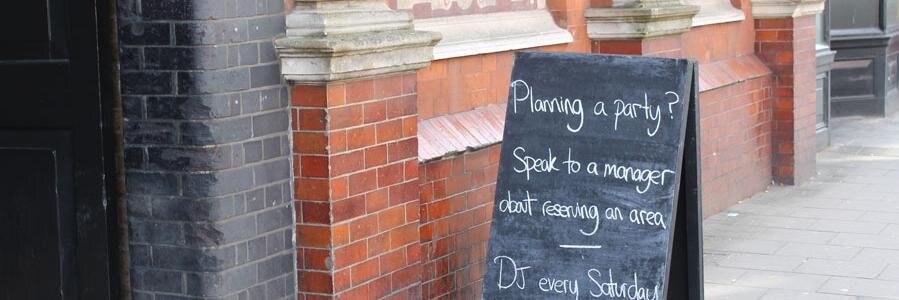 Planning a party?
Speak to a manager
about reserving an area
DJ every Saturday